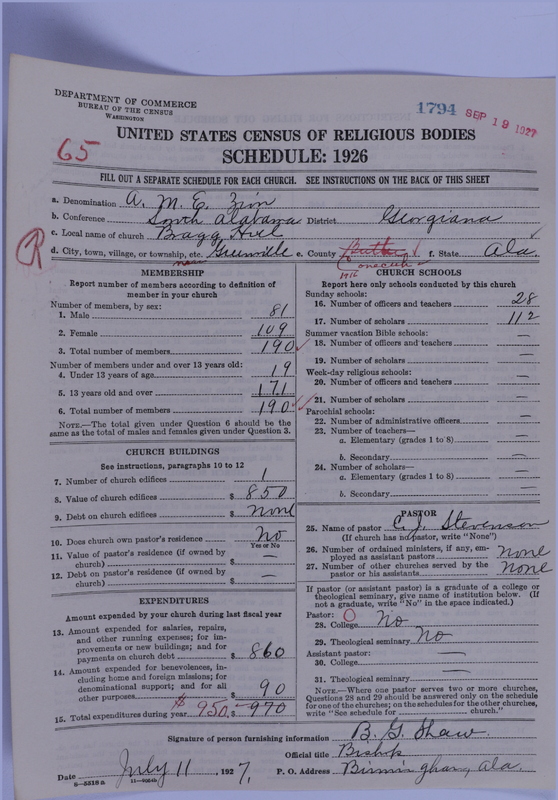 DEPARTMENT OF COMMERCE
BUREAU OF THE CENSUS
WASHINGTON
1794 SEP 19 1927
UNITED STATES CENSUS OF RELIGIOUS BODIES
SCHEDULE: 1926
65
FILL OUT A SEPARATE SCHEDULE FOR EACH CHURCH. SEE INSTRUCTIONS ON THE BACK OF THIS SHEET
a. Denomination A. M. E. Zion
b. Conference South Alabama District Georgiana
c. Local name of church Bragg Hill
d. City, town, village, or township, etc. near Greenville e. County Butler Conecuh 1916 f. State, Ala.
R
MEMBERSHIP
Report number of members according to definition of member in your church
Number of members, by sex:
1. Male 81
2. Female 109
3. Total number of members 190
Number of members under and over 13 years old:
4. Under 13 years of age 19
5. 13 years old and over 171
6. Total number of members 190
NOTE.—The total given under Question 6 should be the same as the total of males and females given under Question 3.
CHURCH BUILDINGS
See instructions, paragraphs 10 to 12
7. Number of church edifices 1
8. Value of church edifices $ 850
9. Debt on church edifices $ none
10. Does church own pastor's residence no
Yes or No
11. Value of pastor's residence (if owned by church) $ —
12. Debt on pastor's residence (if owned by church) $ —
EXPENDITURES
Amount expended by your church during last fiscal year
13. Amount expended for salaries, repairs, and other running expenses; for improvements or new buildings; and for payments on church debt $ 860
14. Amount expended for benevolences, including home and foreign missions; for denominational support; and for all other purposes $ 90
15. Total expenditures during year $ 950.- 970
CHURCH SCHOOLS
Report here only schools conducted by this church
Sunday schools:
16. Number of officers and teachers 28
17. Number of scholars 112
Summer vacation Bible schools:
18. Number of officers and teachers —
19. Number of scholars —
Week-day religious schools:
20. Number of officers and teachers —
21. Number of scholars —
Parochial schools:
22. Number of administrative officers —
23. Number of teachers—
a. Elementary (grades 1 to 8) —
b. Secondary —
24. Number of scholars—
a. Elementary (grades 1 to 8) —
b. Secondary —
PASTOR
25. Name of pastor C. J. Stevenson
(If church has no pastor, write "None")
26. Number of ordained ministers, if any, employed as assistant pastors none
27. Number of other churches served by the pastor or his assistants none
If pastor (or assistant pastor) is a graduate of a college or theological seminary, give name of institution below. (If not a graduate, write "No" in the space indicated.)
Pastor: O
28. College No
29. Theological seminary No
Assistant pastor: —
30. College —
31. Theological seminary —
NOTE.—Where one pastor serves two or more churches, Questions 28 and 29 should be answered only on the schedule for one of the churches; on the schedules for the other churches, write "See schedule for ______ church."
Signature of person furnishing information B. G. Shaw
Official title Bishop
Date July 11, 1927. P. O. Address Birmingham, Ala.
8—5518 a